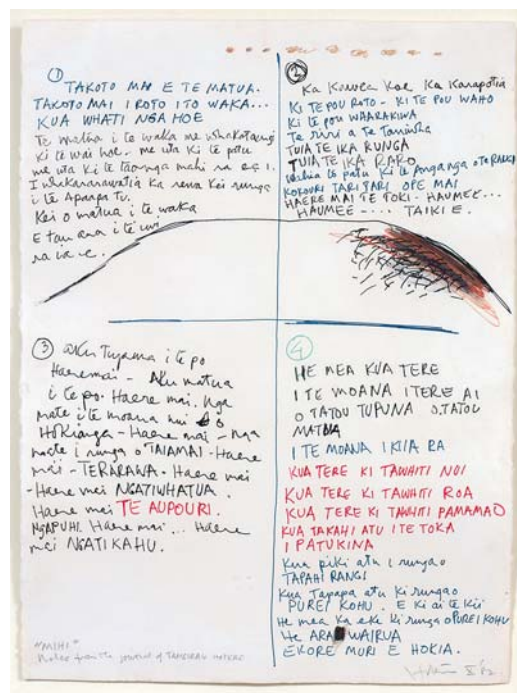 ①
TAKOTO MAI E TE MATUA.
TAKOTO MAI I ROTO I TO WAKA...
KUA WHATI NGA HOE
Te matua i te waka me whakatangi
Ki te wai hoe. me uta Ki te patu
me uta Ki te taonga mahi na e
I whakanarawatia Ka rewa Kei runga
i te
Kei o matua i te waka
E i te iwi
②
Ka Korwea Koe Ka Karapotia
KI TE POU ROTO - KI TE POU WAHO
Ki te POU WAARAKIWA
Te riri a te Taniwha
TUIA TE IKA RUNGA
TUIA TE IKA RARO
te patu Ki te Anganga o te RANGI
KOKOURI TARI TARI OPE MAI
HAERE MAI TE TOKI - HAUMEE...
HAUMEE - ... TAIKI E.
③ aku Tupuna i te po
Haere mai - Aku matua
i te po. Haere mai. Nga
mate i te moana nui o
HOKianga - Haere mai - nga
mate i runga o TAIAMAI - Haere
mai - TERARAWA. Haere mai
- Haere mai NGATIWHATUA.
Haere mai TE AUPOURI.
NGAPUHI. Haere mai... Haere
mai NGATIKAHU.
④
HE MEA KUA TERE
I TE MOANA I TERE AI
O TATOU TUPUNA O.TATOU
MATUA
I TE MOANA I KIIA RA
KUA TERE KI TAWHITI NUI
KUA TERE KI TAWHITI ROA
KUA TERE KI TAWHITI PAMAMAO
KUA TAKAHI ATU I TE TOKA
I PATUKINA
Kua piki atu i runga o
TAPAHI RANGI
Kua Tapapa atu Ki runga o
PUREI KOHU. E Ki ai te Kii
He mea Ka eke Ki runga o PUREI KOHU
He ARA WAIRUA
EKORE MURI E HOKIA.
"MIHI"
Notes from the journal of